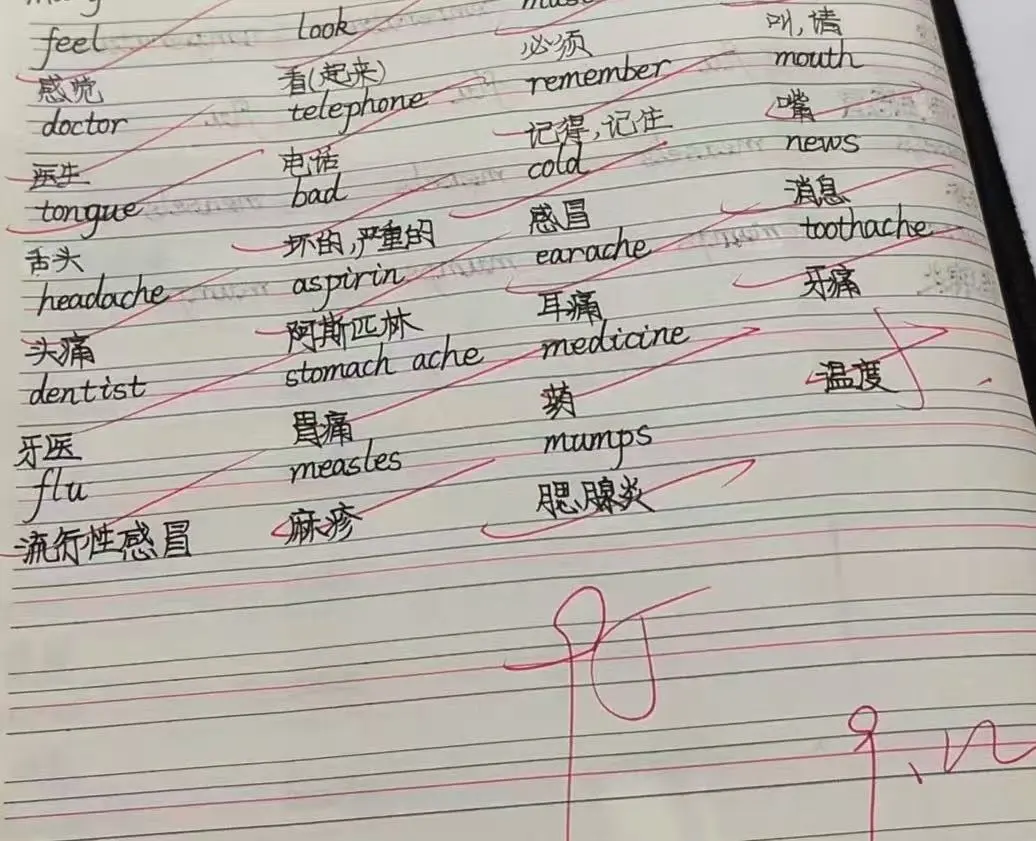 feel look
感觉 看(起来) 必须 叫,请
doctor telephone remember mouth
医生 电话 记得,记住 嘴
tongue bad cold news
舌头 坏的,严重的 感冒 消息
headache aspirin earache toothache
头痛 阿斯匹林 耳痛 牙痛
dentist stomach ache medicine
牙医 胃痛 药 温度
flu measles mumps
流行性感冒 麻疹 腮腺炎